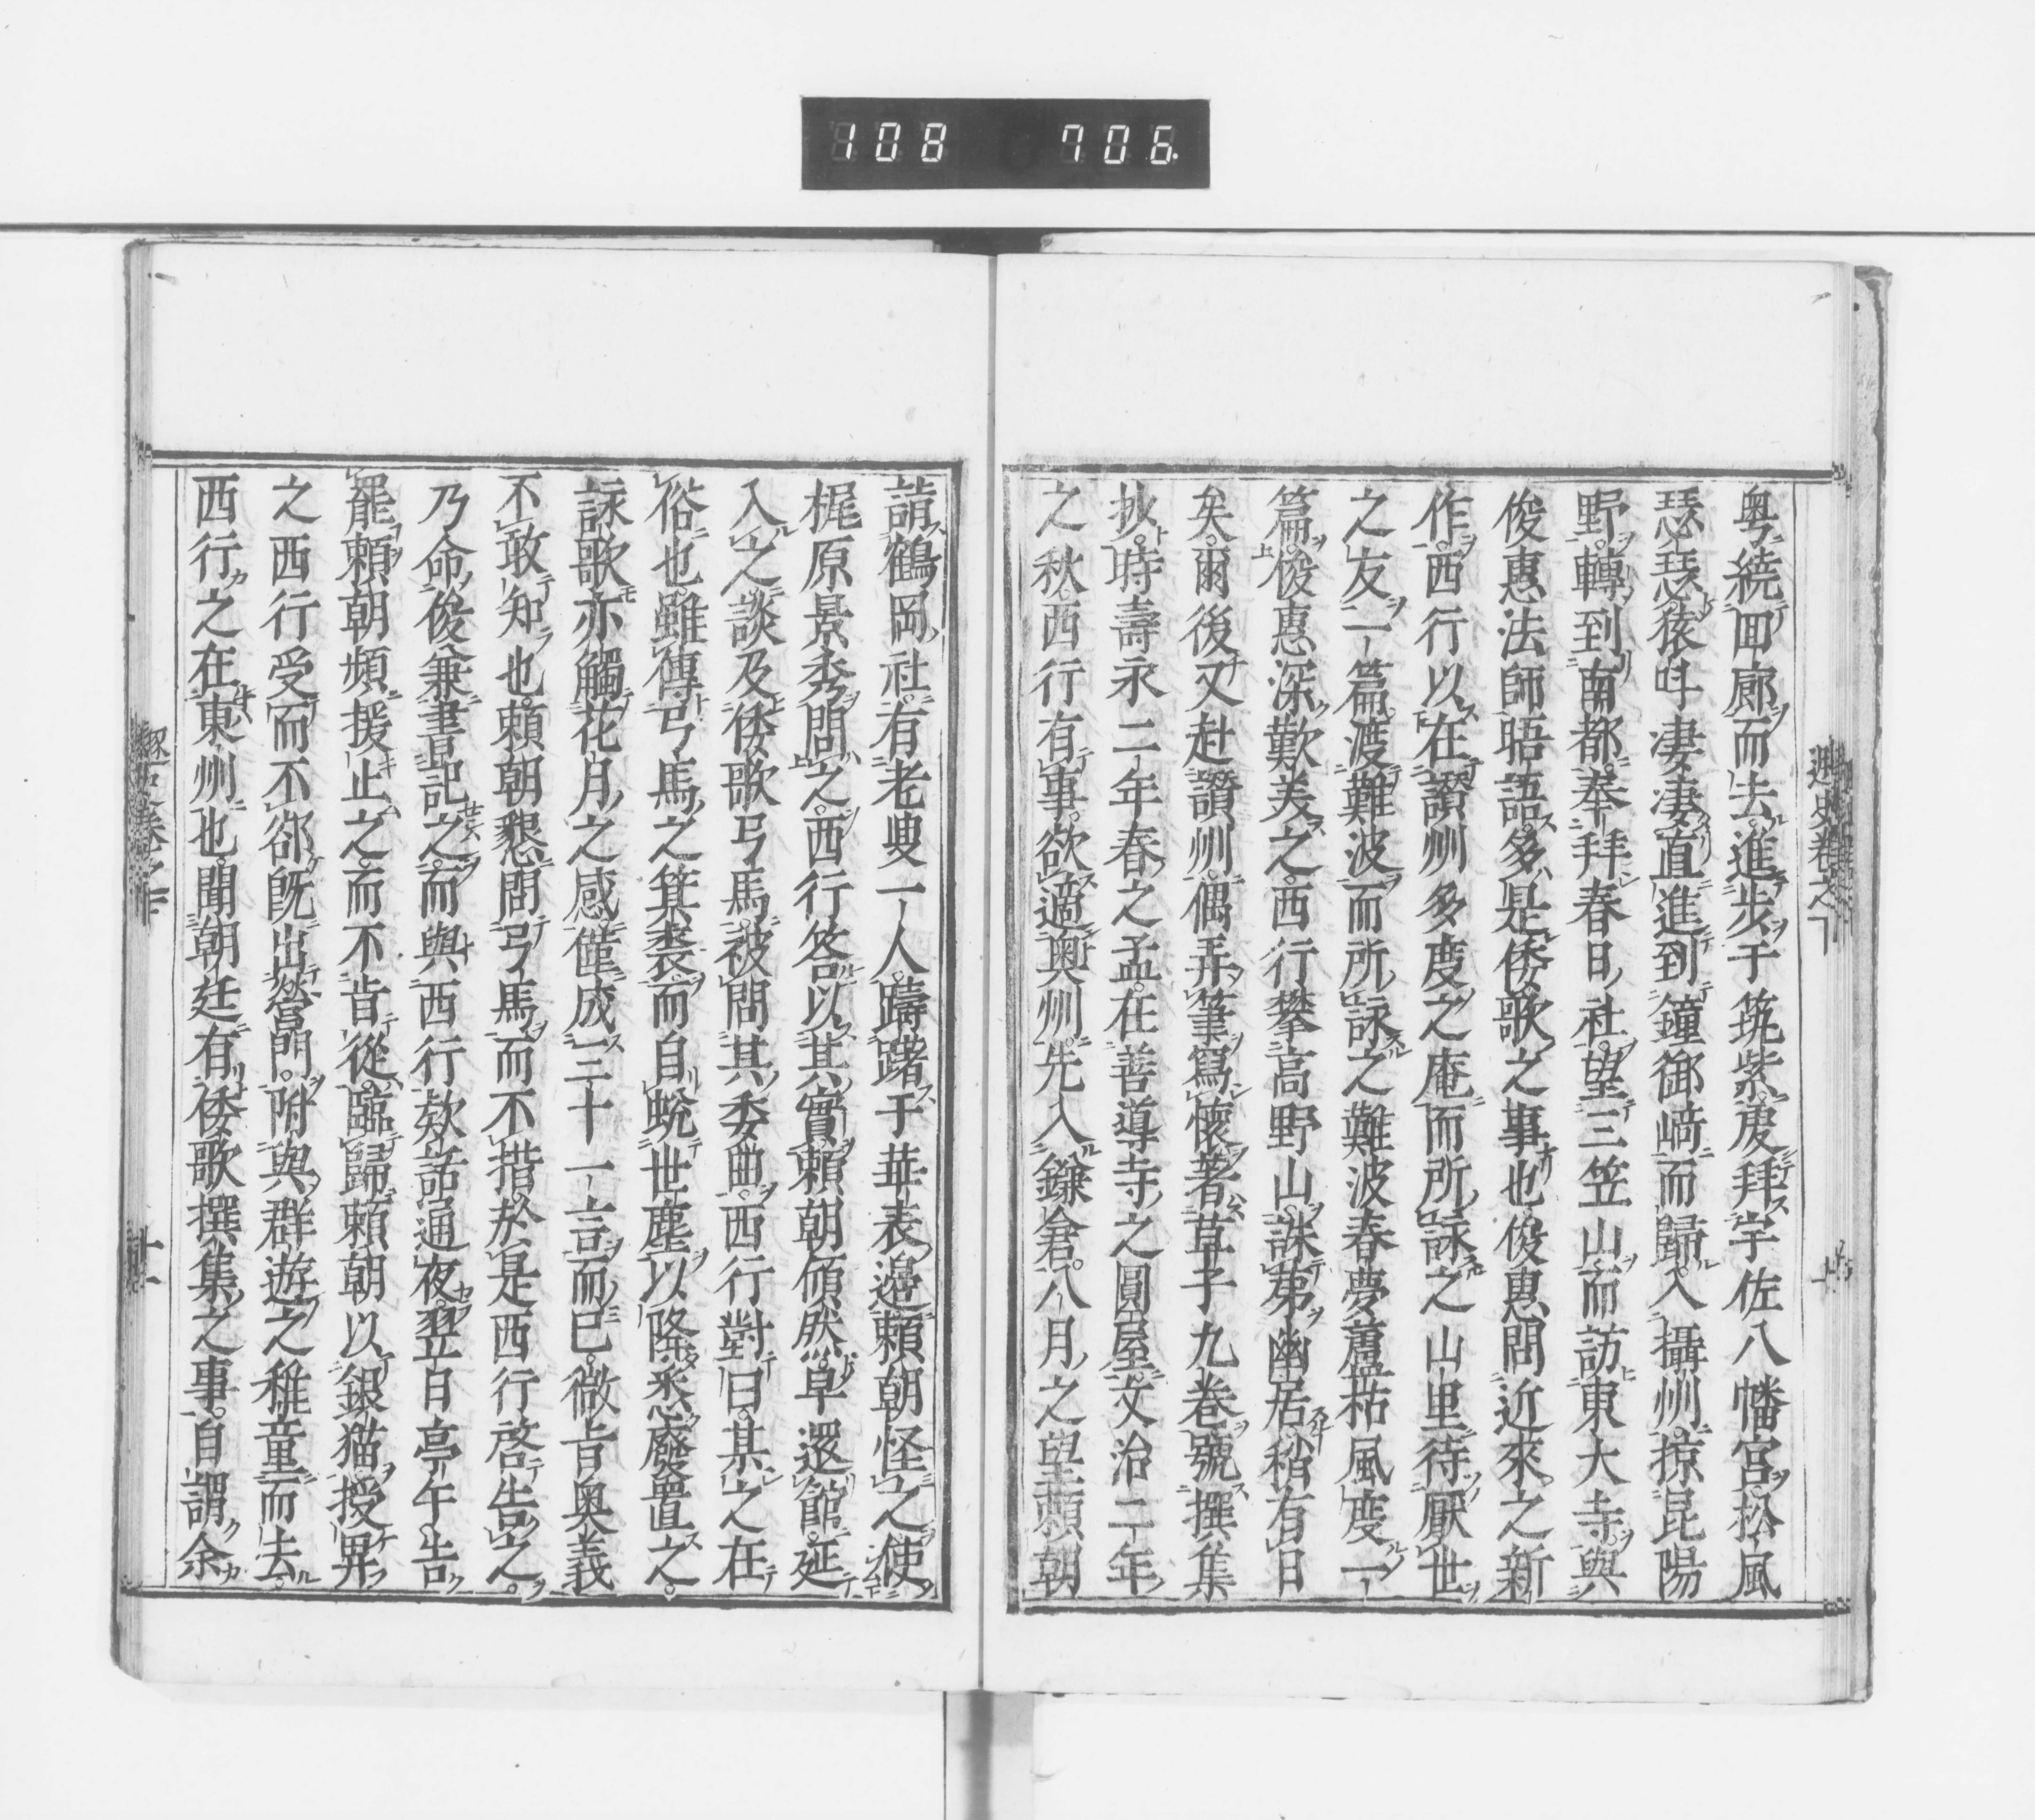 108 706
粤繞回廊而去進步于筑紫處拜宇佐八幡宮松風
瑟瑟猿叫凄凄直進到鐘御﨑而歸入攝州掠昆陽
野轉到南都奉拜春日社望三笠山而訪東大寺與
俊惠法師晤語多是倭歌之事也俊惠問近來之新
作西行以在讃州多度之庵而所詠之山里待厭世
之友一篇渡難波而所詠之難波春夢蘆枯風度一
篇俊惠深歎美之西行攀高野山誅茅幽居稍有日
矣爾後又赴讃州偶弄筆寫懷著草子九卷號撰集
抄時壽永二年春之孟在善導寺之圓屋文治二年
之秋西行有事欲適奧州先入鎌倉八月之望賴朝
請鶴岡社有老叟一人躊躇于華表邊賴朝怪之使
梶原景季問之西行答以其實賴朝傾然卓還館延
入之談及倭歌弓馬被問其委曲西行對曰某之在
俗也雖傳弓馬之箕裘而自蛻世塵以降悉廢置之
詠歌亦觸花月之感僅成三十一言而已微旨奧義
不敢知也賴朝懇問弓馬而不措於是西行啓告之
乃命俊兼書記之而與西行欵話通夜翌日亭午告
罷賴朝頻援止之而不肯從臨歸賴朝以銀猫授畀
之西行受而不郤旣出營門附與群遊之稚童而去
西行之在東州也聞朝廷有倭歌撰集之事自謂余